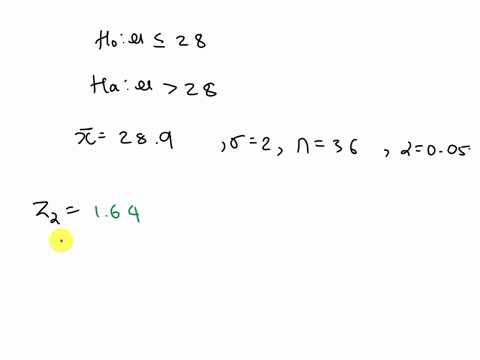 H₀: μ ≤ 28
Ha: μ > 28
x̄ = 28.9 , σ=2, n = 36 , α=0.05
Z₂ = 1.64